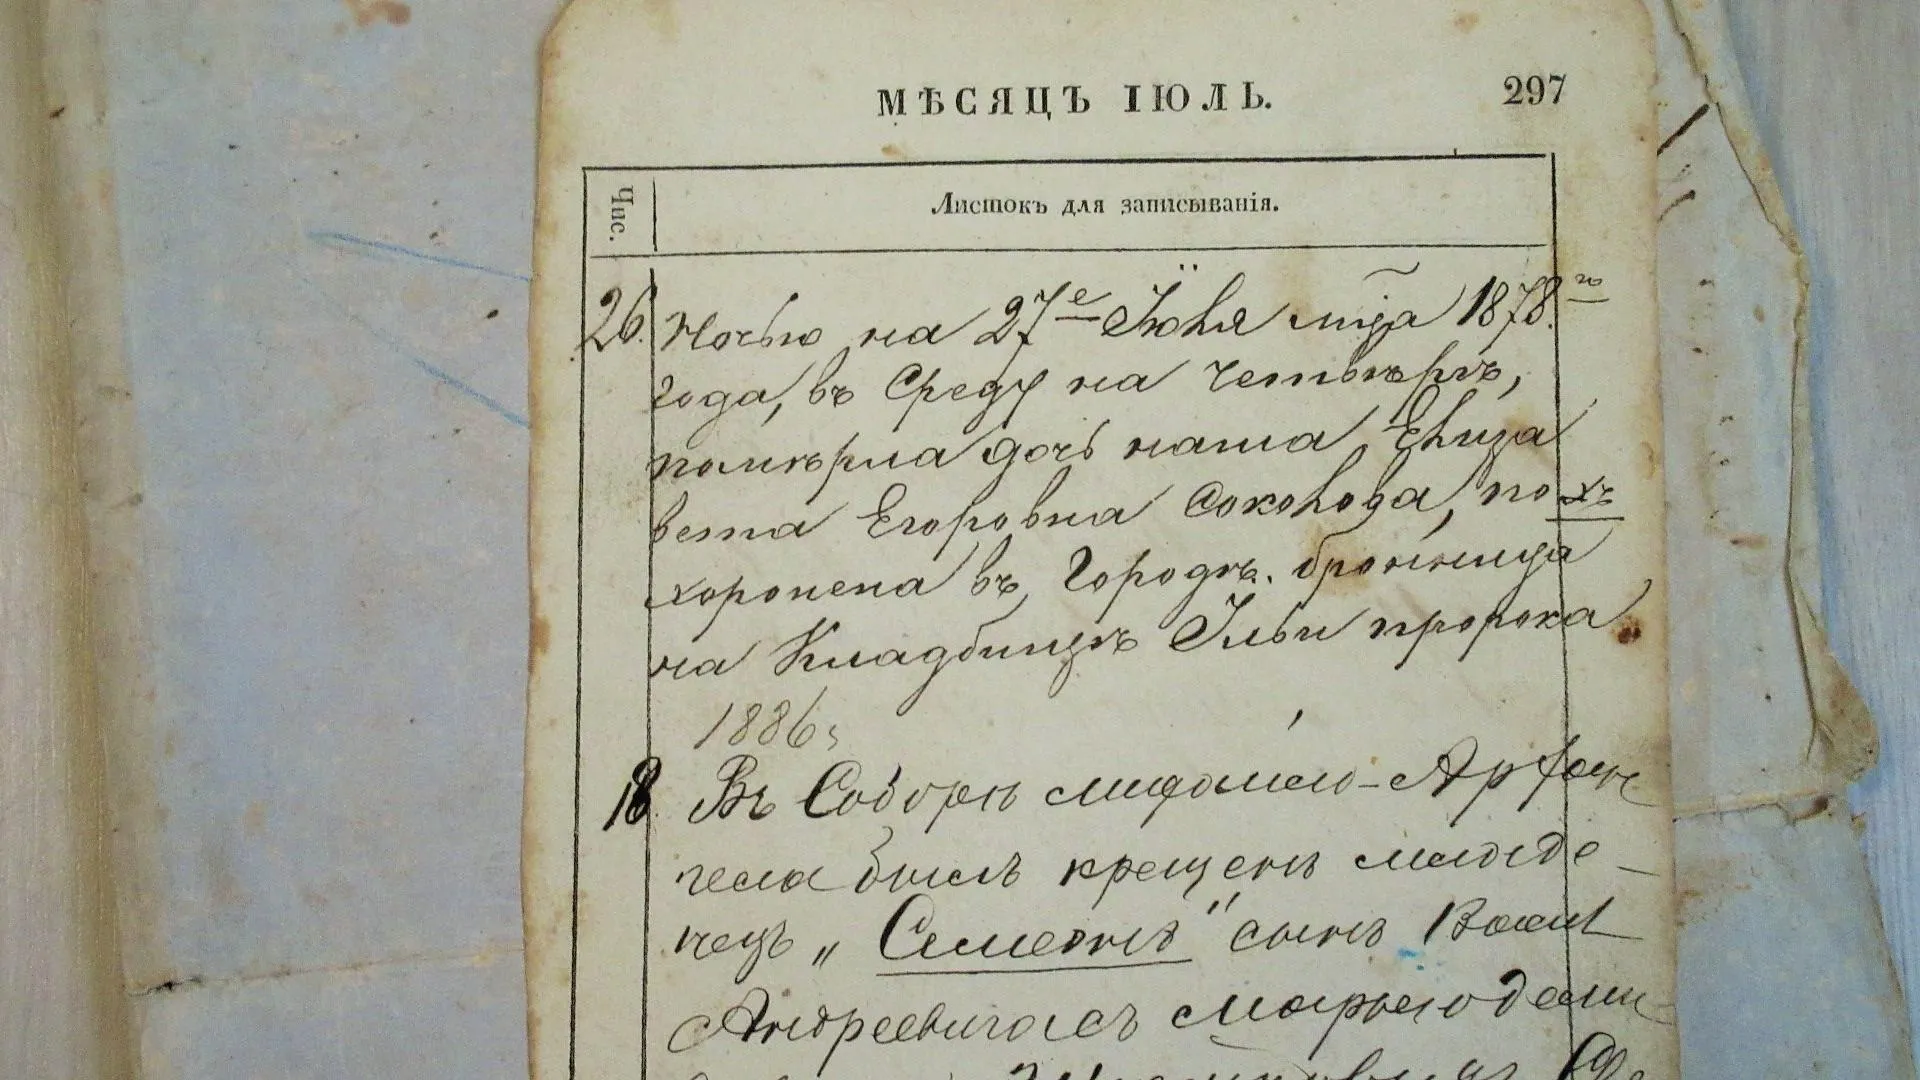 МѢСЯЦЪ ІЮЛЬ.
297
Чис.
Листокъ для записыванія.
26. Ночью на 27е Іюля мца 1878.го
года, въ Среду на Четвѣргъ,
помѣрла дочь наша Елиза
вета Егоровна Соколова, по
хоронена въ Городѣ. бронница
на Кладбищѣ Ильи пророка
1886
18 Въ Соборѣ
был крещенъ младе-
нецъ „Симеонъ" сынъ
Андреевича съ